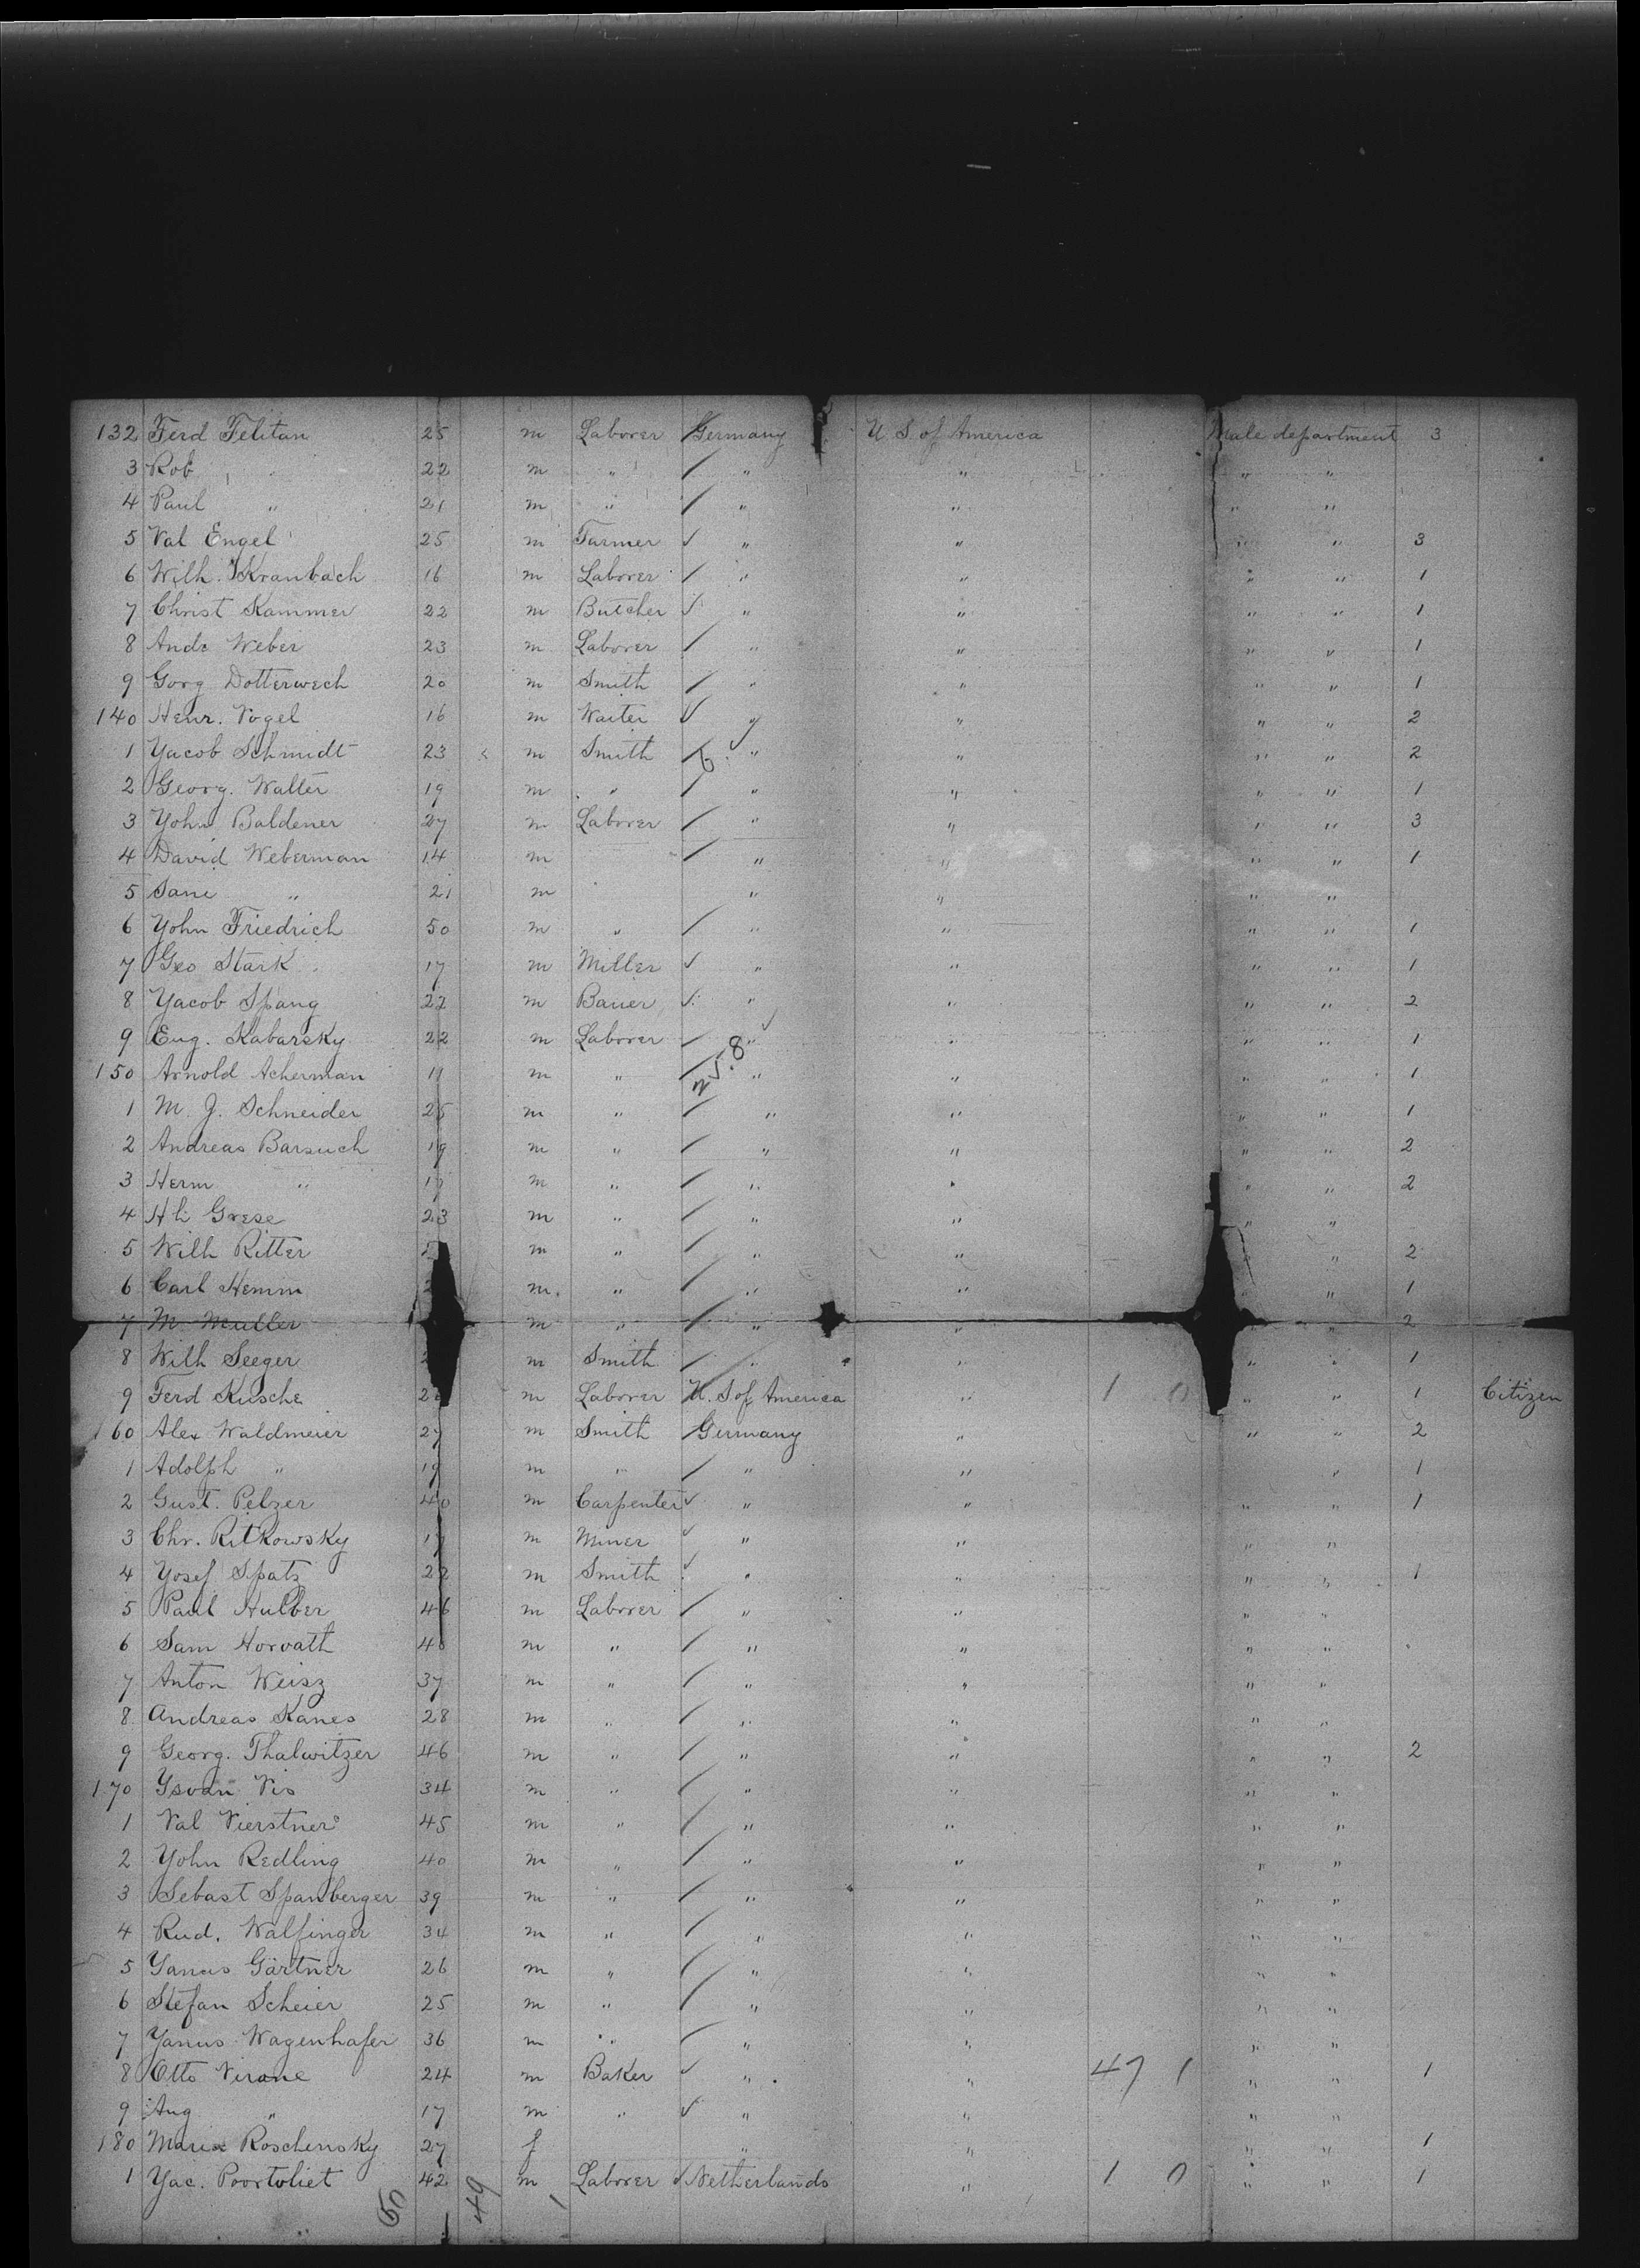 132 Ferd Felitan 25 m Laborer Germany U. S. of America Male department 3
3 Rob " 22 m " " " " "
4 Paul " 21 m " " " " "
5 Val Engel 25 m Farmer " " " " 3
6 Wilh. Kranbach 16 m Laborer " " " " 1
7 Christ Kammer 22 m Butcher " " " " 1
8 Andr Weber 23 m Laborer " " " " 1
9 Gorg Dotterwech 20 m Smith " " " " 1
140 Henr. Vogel 16 m Waiter " " " " 2
1 Yacob Schmidt 23 m Smith " " " " 2
2 Georg. Walter 19 m " " " " " 1
3 Yohn Baldener 27 m Laborer " " " " 3
4 David Weberman 14 m " " " " 1
5 Sane " 21 m " " " "
6 Yohn Friedrich 50 m " " " " " 1
7 Geo Stark 17 m Miller " " " " 1
8 Yacob Spang 22 m Bauer " " " " 2
9 Eug. Kabarsky 22 m Laborer " " " " 1
258
150 Arnold Acherman 19 m " " " " " 1
1 M. J. Schneider 25 m " " " " " 1
2 Andreas Barsuch 19 m " " " " " 2
3 Herm " 17 m " " " " " 2
4 Hh Grese 23 m " " " " "
5 Wilh Ritter m " " " " " 2
6 Carl Hemm m. " " " " " 1
7 M. Muller m " " " " " 2
8 Wilh Seeger m Smith " " " " 1
9 Ferd Kusche m Laborer U. S of America " 1 0 " " 1 Citizen
160 Alex Waldmeier 27 m Smith Germany " " " 2
1 Adolph " 19 m " " " " 1
2 Gust. Pelzer 40 m Carpenter " " " " 1
3 Chr. Ritkowsky 17 m Miner " " " "
4 Yosef Spatz 22 m Smith " " " " 1
5 Paul Hulber 46 m Laborer " " " "
6 Sam Horvath 40 m " " " " "
7 Anton Weisz 37 m " " " " "
8 Andreas Kanes 28 m " " " " "
9 Georg. Thalwitzer 46 m " " " " " 2
170 Ysvan Vis 34 m " " " " "
1 Val Vierstner 45 m " " " " "
2 Yohn Redling 40 m " " " " "
3 Sebast Spanberger 39 m " " " " "
4 Rud. Walfinger 34 m " " " " "
5 Yanus Gärtner 26 m " " " " "
6 Stefan Scheier 25 m " " " " "
7 Yanus Wagenhafer 36 m " " " " "
8 Otto Virane 24 m Baker " " 47 1 " " 1
9 Aug " 17 m " " " " "
180 Maria Roschensky 27 f " " " " 1
1 Yac. Poortvliet 42 m Laborer Netherlands " 1 0 " " 1
50 49 1